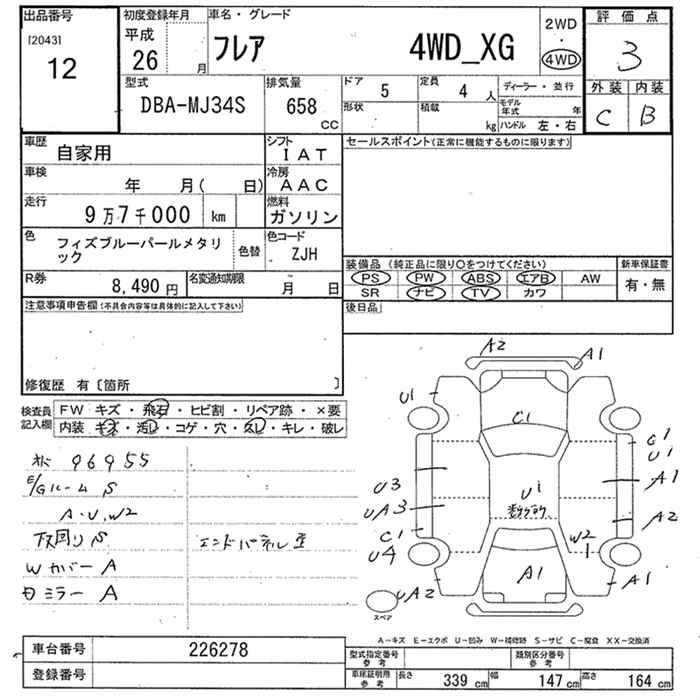 出品番号
[2043]
12
初度登録年月
平成
26 月
車名・グレード
フレア 4WD_XG
2WD
・
4WD
評価点
3
外装 内装
C B
型式
DBA-MJ34S
排気量
658 CC
ドア 5
定員 4 人
形状
積載 kg
ディーラー・並行
モデル年式 年
ハンドル 左・右
車歴 自家用
シフト IAT
車検 年 月( 日)
冷房 AAC
走行 9万7千000 km
燃料 ガソリン
色 フィズブルーパールメタリック 色替
色コード ZJH
R券 8,490円
名変通知期限 月 日
セールスポイント(正常に機能するものに限ります)
装備品 (純正品に限り○をつけてください)
PS PW ABS エアB AW
SR ナビ TV カワ
新車保証書
有・無
後日品
注意事項申告欄(不具合内容等は具体的に記入して下さい)
修復歴 有〔箇所 〕
検査員記入欄
FW キズ・飛石・ヒビ割・リペア跡・×要
内装 キズ・汚レ・コゲ・穴・スレ・キレ・破レ
96955
E/Gルーム S
A・U、W2
下回り S
エンドパネル
Wカバー A
ミラー A
A2 A1
U1
C1
C1
U1
U3
A1
UA3
U1
A2
C1
U4
W2
A1
UA2
A1
スペア
A-キズ E-エクボ U-凹み W-補修跡 S-サビ C-腐食 XX-交換済
車台番号 226278
登録番号
型式指定番号
参考
類別区分番号
参考
車庫証明用
参考
長さ 339 cm 幅 147 cm 高さ 164 cm